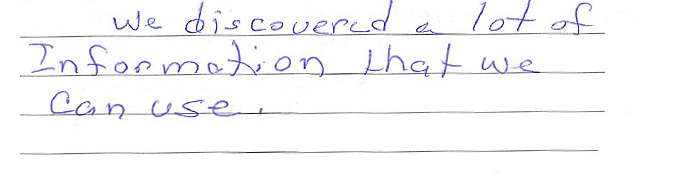 We discovered a lot of
Information that we
Can use.